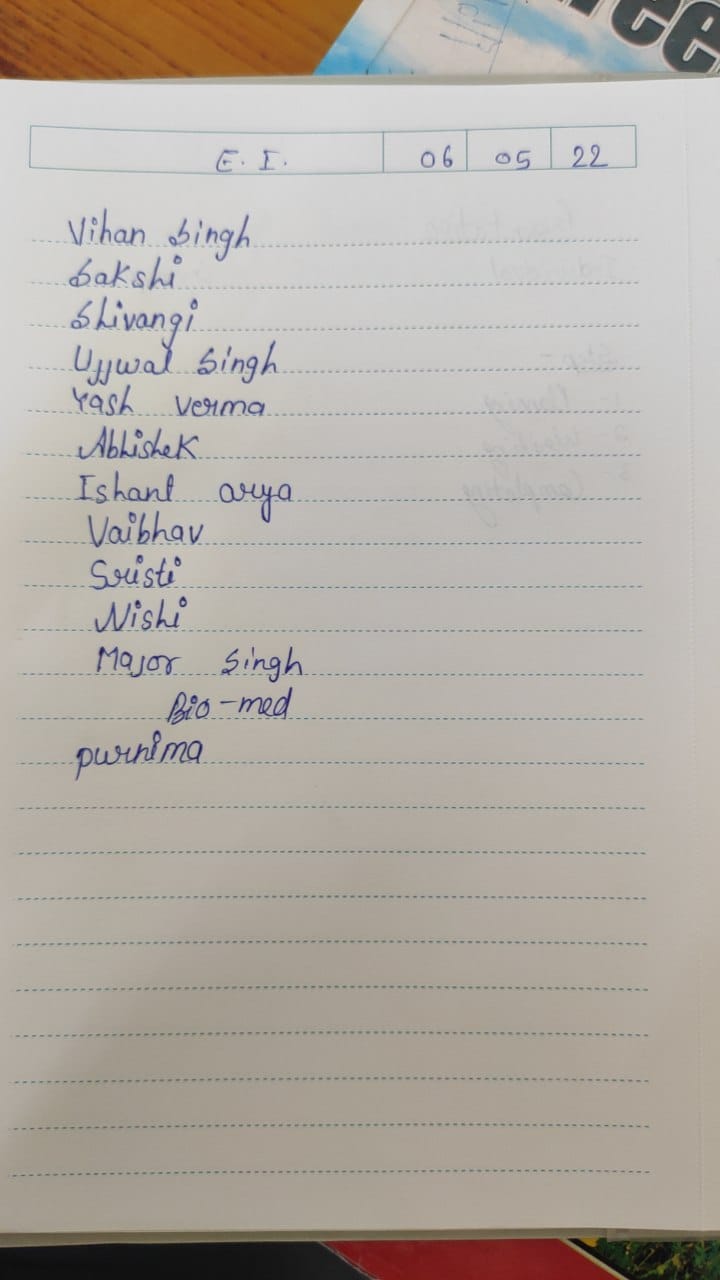 E. I. 06 05 22
Vihan Singh
Sakshi
Shivangi
Ujjwal Singh
Yash Verma
Abhishek
Ishant arya
Vaibhav
Sristi
Nishi
Major Singh
Bio-med
purnima